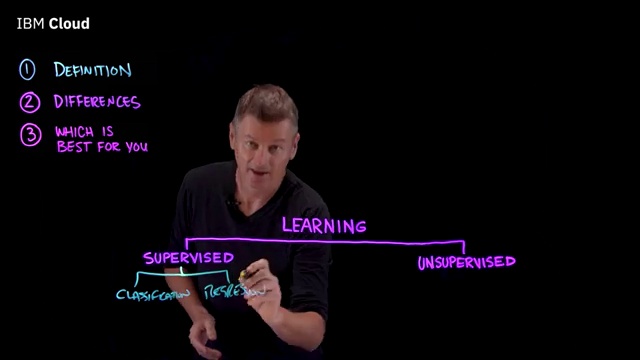 IBM Cloud
1 DEFINITION
2 DIFFERENCES
3 WHICH IS
BEST FOR YOU
LEARNING
SUPERVISED
UNSUPERVISED
CLASSIFICATION